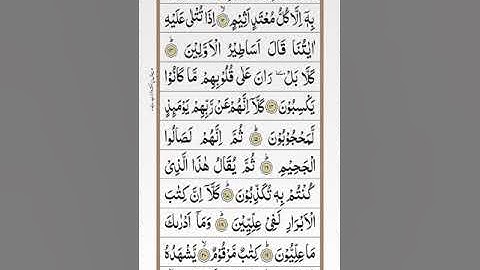 بِهٖۤ اِلَّا كُلُّ مُعْتَدٍ اَثِيْمٍۙ ۝۱۲ اِذَا تُتْلٰى عَلَيْهِ
اٰيٰتُنَا قَالَ اَسَاطِيْرُ الْاَوَّلِيْنَؕ ۝۱۳
كَلَّا بَلْ ٚ رَانَ عَلٰى قُلُوْبِهِمْ مَّا كَانُوْا
يَكْسِبُوْنَ ۝۱۴ كَلَّاۤ اِنَّهُمْ عَنْ رَّبِّهِمْ يَوْمَىِٕذٍ
لَّمَحْجُوْبُوْنَؕ ۝۱۵ ثُمَّ اِنَّهُمْ لَصَالُوا
الْجَحِيْمِؕ ۝۱۶ ثُمَّ يُقَالُ هٰذَا الَّذِيْ
كُنْتُمْ بِهٖ تُكَذِّبُوْنَؕ ۝۱۷ كَلَّاۤ اِنَّ كِتٰبَ
الْاَبْرَارِ لَفِيْ عِلِّيِّيْنَؕ ۝۱۸ وَمَاۤ اَدْرٰىكَ
مَا عِلِّيُّوْنَؕ ۝۱۹ كِتٰبٌ مَّرْقُوْمٌۙ ۝۲۰ يَّشْهَدُهُ